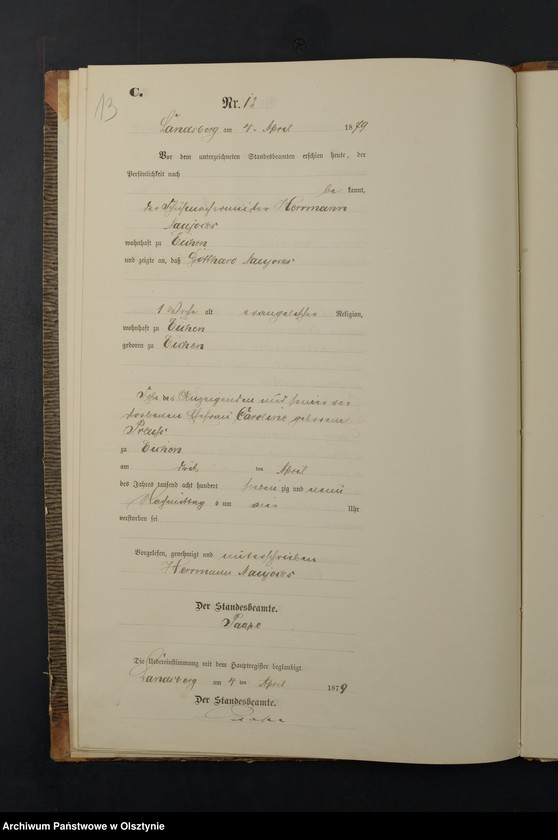 C.
13
Nr. 12
Landsberg am 4. April 1879
Vor dem unterzeichneten Standesbeamten erschien heute, der
Persönlichkeit nach
be kannt,
der Herrmann
Naujoks
wohnhaft zu Eichen
und zeigte an, daß Naujoks
1 Woche alt evangelischer Religion,
wohnhaft zu Eichen
geboren zu Eichen
des Anzeigenden und seiner ver
storbenen Ehefrau Caroline geborene
Preuß
zu Eichen
am ten April
des Jahres tausend acht hundert sieben zig und neun
Nachmittag s um Uhr
verstorben sei
Vorgelesen, genehmigt und unterschrieben
Herrmann Naujoks
Der Standesbeamte.
Die Uebereinstimmung mit dem Hauptregister beglaubigt.
Landsberg am 4 ten April 1879
Der Standesbeamte.
Archiwum Państwowe w Olsztynie